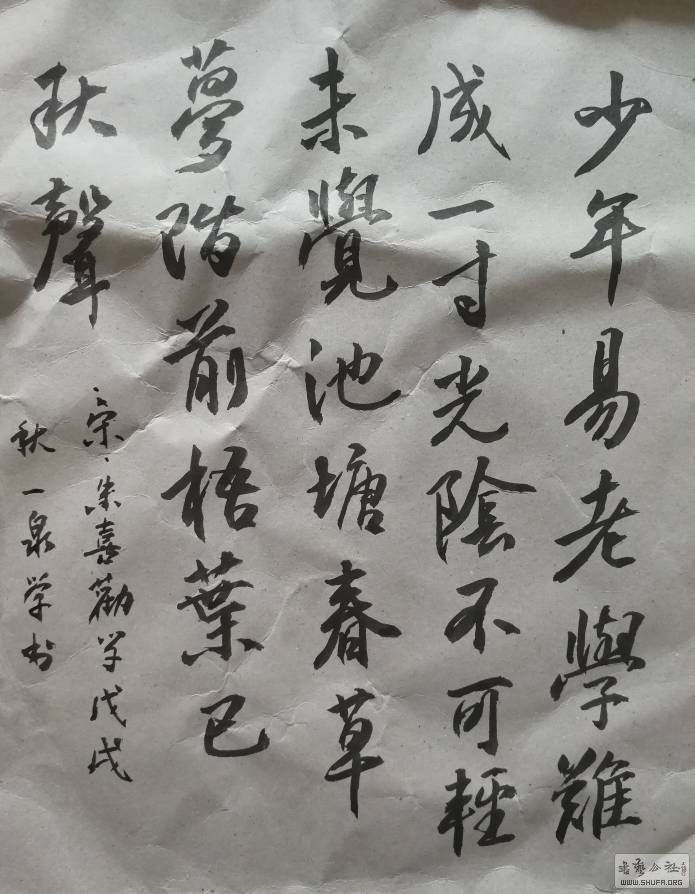 少年易老學難
成一寸光陰不可輕
未覺池塘春草
夢階前梧葉已
秋聲
宋朱熹勸学戊戌
秋一泉学书
书艺公社
WWW.SHUFA.ORG